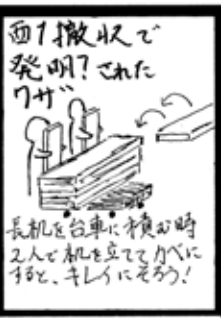 西1撤収で
発明?された
ワザ
長机を台車に積む時
2人で机を立ててカベに
すると、キレイにそろう!